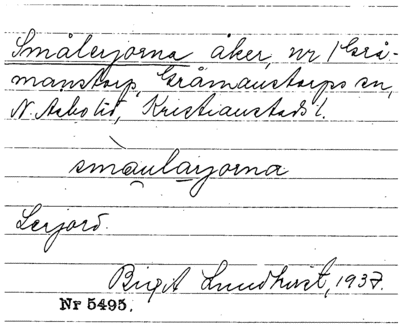 Smålerjorna åker, nr 1 Grå-
manstorp, Gråmanstorps sn,
N. Åsbo hd, Kristianstads l.
småularyorna
Lerjord.
Birgit Lundqvist, 1937.
Nr 5495.